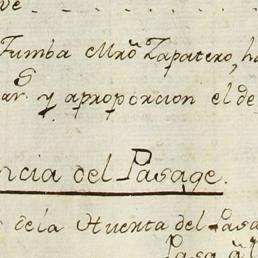 ve
Fumba Mrõ Zapatero, ha
ar. y aproporcion el de
ncia del Pasage.
dela Huenta del Pasa
Pasa